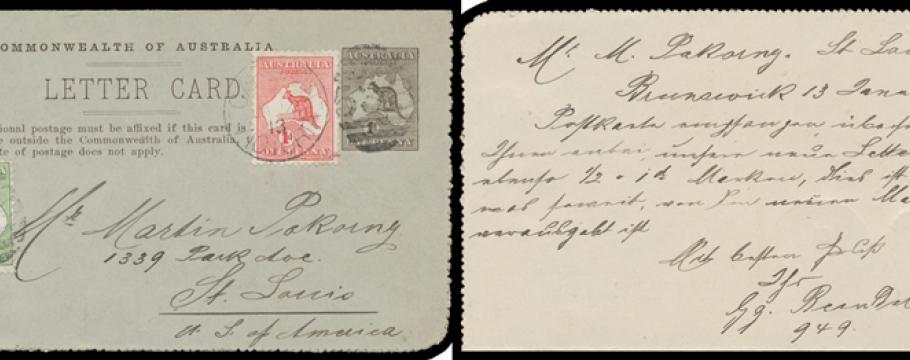 OMMONWEALTH OF AUSTRALIA.
LETTER CARD.
ional postage must be affixed if this card is
e outside the Commonwealth of Australia,
te of postage does not apply.
AUSTRALIA
POSTAGE
1D
ONE PENNY
AUSTRALIA
Mr Martin Pokorny
1339 Park Ave.
St. Louis
U. S. of America
Mr. M. Pokorny. St Lou
Brunswick 13 Janu
Postkarte empfangen, übers
Ihnen anbei, unsere neue Lette
ebenso ½ & 1d Marken, dies ist
was soweit, von den neuen Ma
verausgabt ist
Mit besten Gruß
Ihr
Gg.
949.